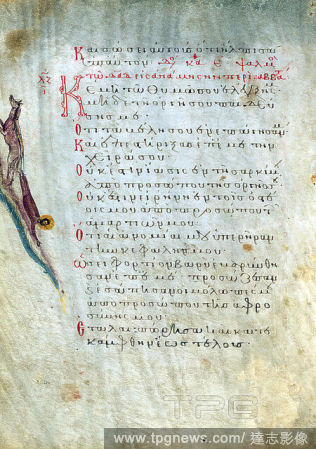 Καὶ σώσει αὐτοὺς ὅτι ἤλπισαν
ἐπ' αὐτόν
εἰς ἀνάμνησιν περὶ
Κε μὴ τῷ θυμῷ σου ἐλέγξῃς
μηδὲ τῇ ὀργῇ σου παιδεύ
σῃς με
Ὅτι τὰ βέλη σου ἐνεπάγησάν μοι
Καὶ ἐπεστήριξας ἐπ' ἐμὲ τὴν
χεῖρά σου
Οὐκ ἔστιν ἴασις ἐν τῇ σαρκί μου
ἀπὸ προσώπου τῆς ὀργῆς σου
Οὐκ ἔστιν εἰρήνη ἐν τοῖς ὀστέ
οις μου ἀπὸ προσώπου τῶν
ἁμαρτιῶν μου
Ὅτι αἱ ἀνομίαι μου ὑπερῆραν
τὴν κεφαλήν μου
Ὡσεὶ φορτίον βαρὺ ἐβαρύνθη
σαν ἐπ' ἐμέ προσώζεσαν
καὶ ἐσάπησαν οἱ μώλωπές μου
ἀπὸ προσώπου τῆς ἀφρο
σύνης μου
Ἐταλαιπώρησα καὶ κατε
κάμφθην ἕως τέλους
TPG
www.tpgnews.com/達志影像